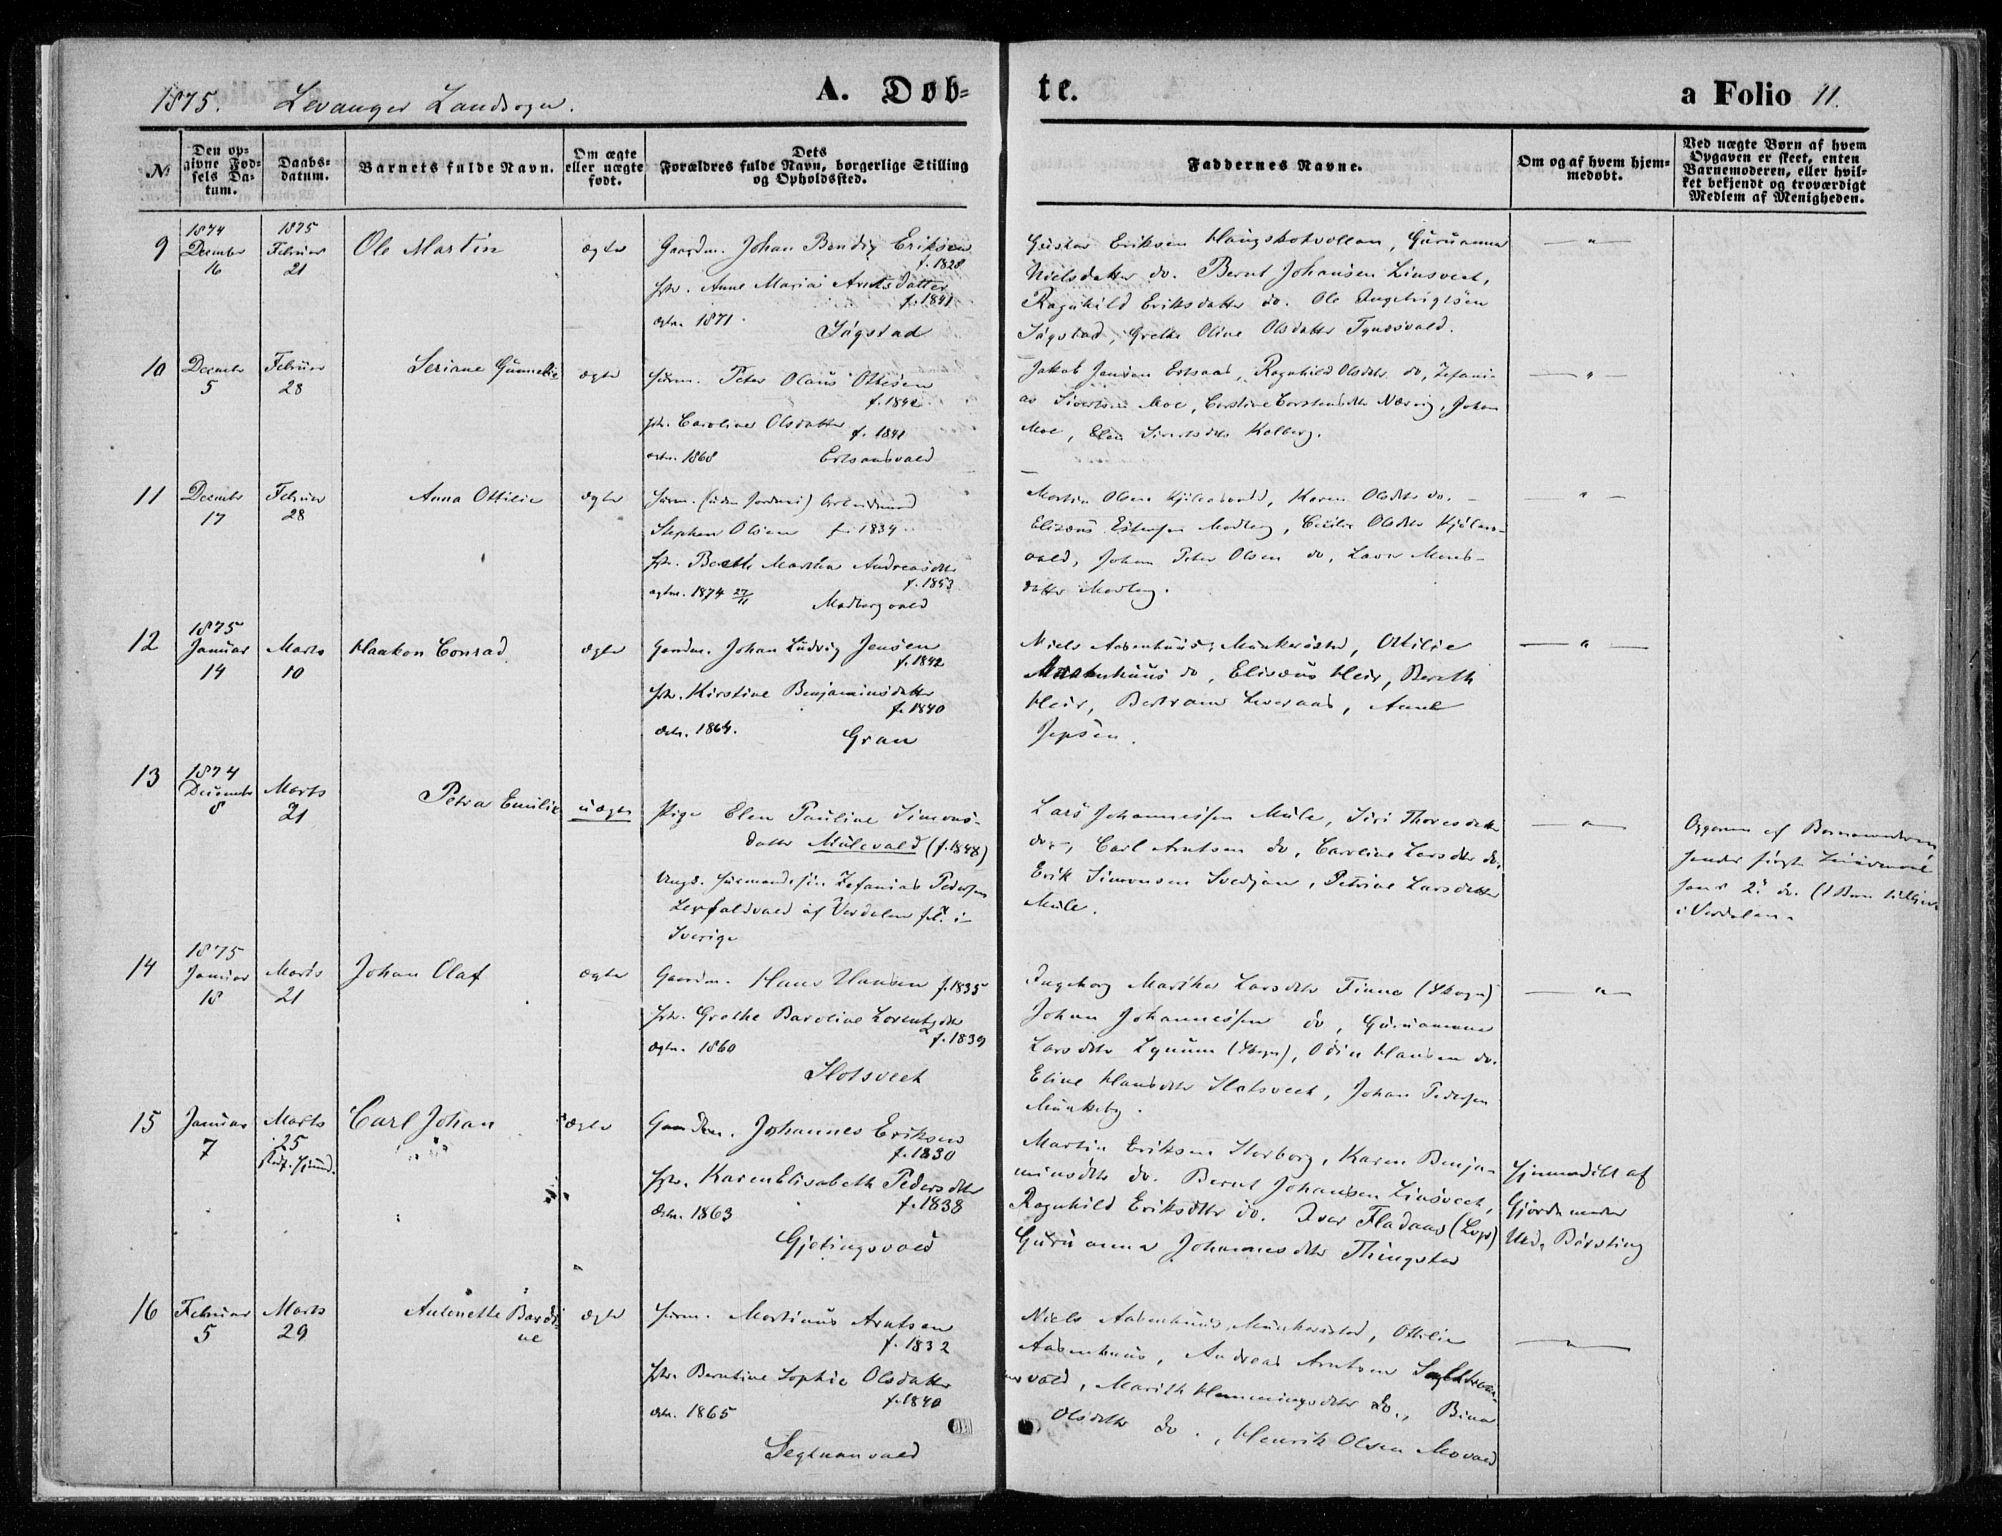 1875. Levanger Landsogn.
A. Døb-
te.
a Folio 11.
№
Den op-
givne Fød-
sels Da-
tum.
Daabs-
datum.
Barnets fulde Navn.
Om ægte
eller uægte
født.
Dets
Forældres fulde Navn, borgerlige Stilling
og Opholdssted.
Faddernes Navne.
Om og af hvem hjem-
medøbt.
Ved uægte Børn af hvem
Opgaven er skeet, enten
Barnemoderen, eller hvil-
ket bekjendt og troværdigt
Medlem af Menigheden.
9
1874
December
16
1875
Februar
21
Ole Martin
ægte
Gaardm. Johan Bendix Eriksen
f. 1828
Anne Maria Arntsdatter
f. 1841
1871
Gustav Eriksen Haugskotvollan, Guruanna
Nielsdatter do. Bernt Johansen Linsveet,
Ragnhild Eriksdatter do. Ole Ingebrigtsen
Grethe Oline Olsdatter
10
December
5
Februar
28
Seriane Gunnelie
ægte
Husm. Peter Olaus Ottesen
f. 1842
Caroline Olsdatter f. 1841
1868
Jakob Jensen Ertsaas, Ragnhild Olsdtr do, Zefani-
as Sivertsen Moe, Johan
Moe, Sivertsdtr Kolberg.
11
December
17
Februar
28
Anna Ottilie
ægte
Husm. (uden Jordvei)
Stephen Olsen f. 1834
Martha Andreasdtr
f. 1853
1874 27/11
Modbergvald
Martin Olsen Karen Olsdtr do.
Elisæus Modberg, Olsdtr
vald, Johan Peter Olsen do,
datter Modberg.
12
1875
Januar
14
Marts
10
Haakon Conrad
ægte
Gaardm. Johan Ludvig Jensen
f. 1842
Kirstine Benjaminsdatter
f. 1840
1864.
Gran
Niels Aabenhuus Munkerøstad, Ottilie
Aabenhuus do, Elisæus Heir, Bereth
Heir, Bertram Anne
Jepsen.
13
1874
December
8
Marts
21
Petra Emilie
uægte
Pige Elen Pauline Simons-
datter Mulevald (f. 1848)
Ungk. Husmandssøn Zefanias Pedersen
af Verdalen i
Sverige
Lars Johannessen Mule, Siri Thoresdatter
do, Carl Arntsen do, Caroline Larsdtr do.
Erik Simonsen Svedjan, Petrine Larsdatter
Mule.
Opgaven af Barnemoderen
hendes første
hans 2. do. (1 Barn tidligere
i Verdalen.
14
1875
Januar
18
Marts
21
Johan Olaf
ægte
Gaardm. Hans Hansen f. 1835
Grethe Baroline Lorentzdtr
f. 1839
1860
Slotsveet
Ingeborg Martha Larsdtr Finne (Skogn)
Johan Johannessen do, Guruanna
Larsdtr Lynum (Skogn), Odin Hansen do.
Eline Hansdtr Slotsveet, Johan Pedersen
Munkeby.
15
Januar
7
Marts
25
Carl Johan
ægte
Gaardm. Johannes Eriksen
f. 1830
Karen Elisabeth Pedersdtr
f. 1838
1863
Gjetingsvald
Martin Eriksen Storborg, Karen Benja-
minsdtr do. Bernt Johansen Linsveet,
Ragnhild Eriksdtr do. Iver Fladaas
Guruanna Johannesdtr Thingstad
Hjemmedøbt af
Gjordemoder
Børsting
16
Februar
5
Marts
29
Antonette Bardi-
ne
ægte
Husm. Martinus Arntsen
f. 1832
Berntine Sophie Olsdatter
f. 1840
1865
Segtnanvald
Niels Aabenhuus Munkerøstad, Ottilie
Aabenhuus, Andreas Arntsen
vald, Marith Hemmingsdtr do.,
Olsdtr do., Henrik Olsen Movald